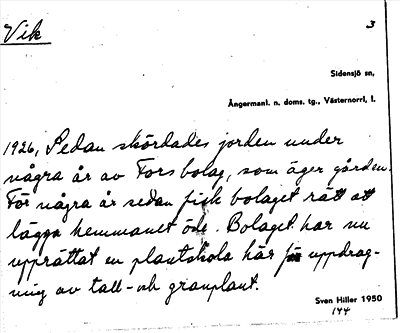 Vik
3
Sidensjö sn,
Ångermanl. n. doms. tg., Västernorrl. l.
1926, Sedan skördades jorden under
några år av Fors bolag, som äger gården.
För några år sedan fick bolaget rätt att
lägga hemmanet öde. Bolaget har nu
upprättat en plantskola här för uppdrag-
ning av tall- och granplant.
Sven Hiller 1950
144